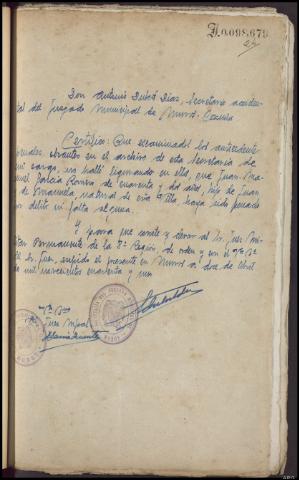 H.0.098.679
Don Antonio Dubert Díaz, Secretario acciden-
tal del Juzgado Municipal de Muros. Coruña
Certifico: Que examinados los antecedentes
penales obrantes en el archivo de esta Secretaría de
mi cargo, no halló figurando en ellos, que Juan Ma-
nuel García Romero de cuarenta y dos años, hijo de Juan
y de Manuela, natural de esta Villa, haya sido penado
por delito ni falta alguna.
Y para que conste y llevar al Sr. Juez Mi-
litar Permanente de la 8ª Región, de orden y con el Vº Bº
del Sr. Juez, expido el presente en Muros a doce de Abril
de mil novecientos cuarenta y uno
Vº Bº
Juez Mpal